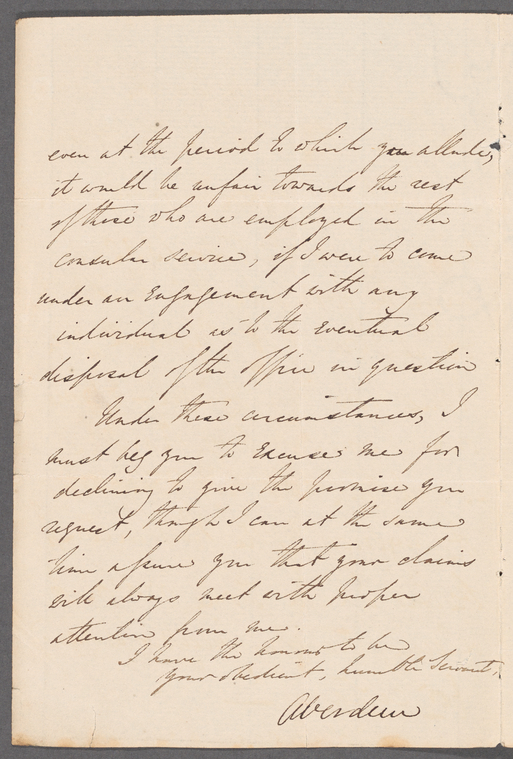 even at the period to which you allude,
it would be unfair towards the rest
of those who are employed in the
consular service, if I were to come
under an Engagement with any
individual as to the eventual
disposal of the office in question
Under these circumstances, I
must beg you to Excuse me for
declining to give the promise you
request, though I can at the same
time assure you that your claims
will always meet with proper
attention from me.
I have the honour to be
your obedient, humble Servant,
Aberdeen